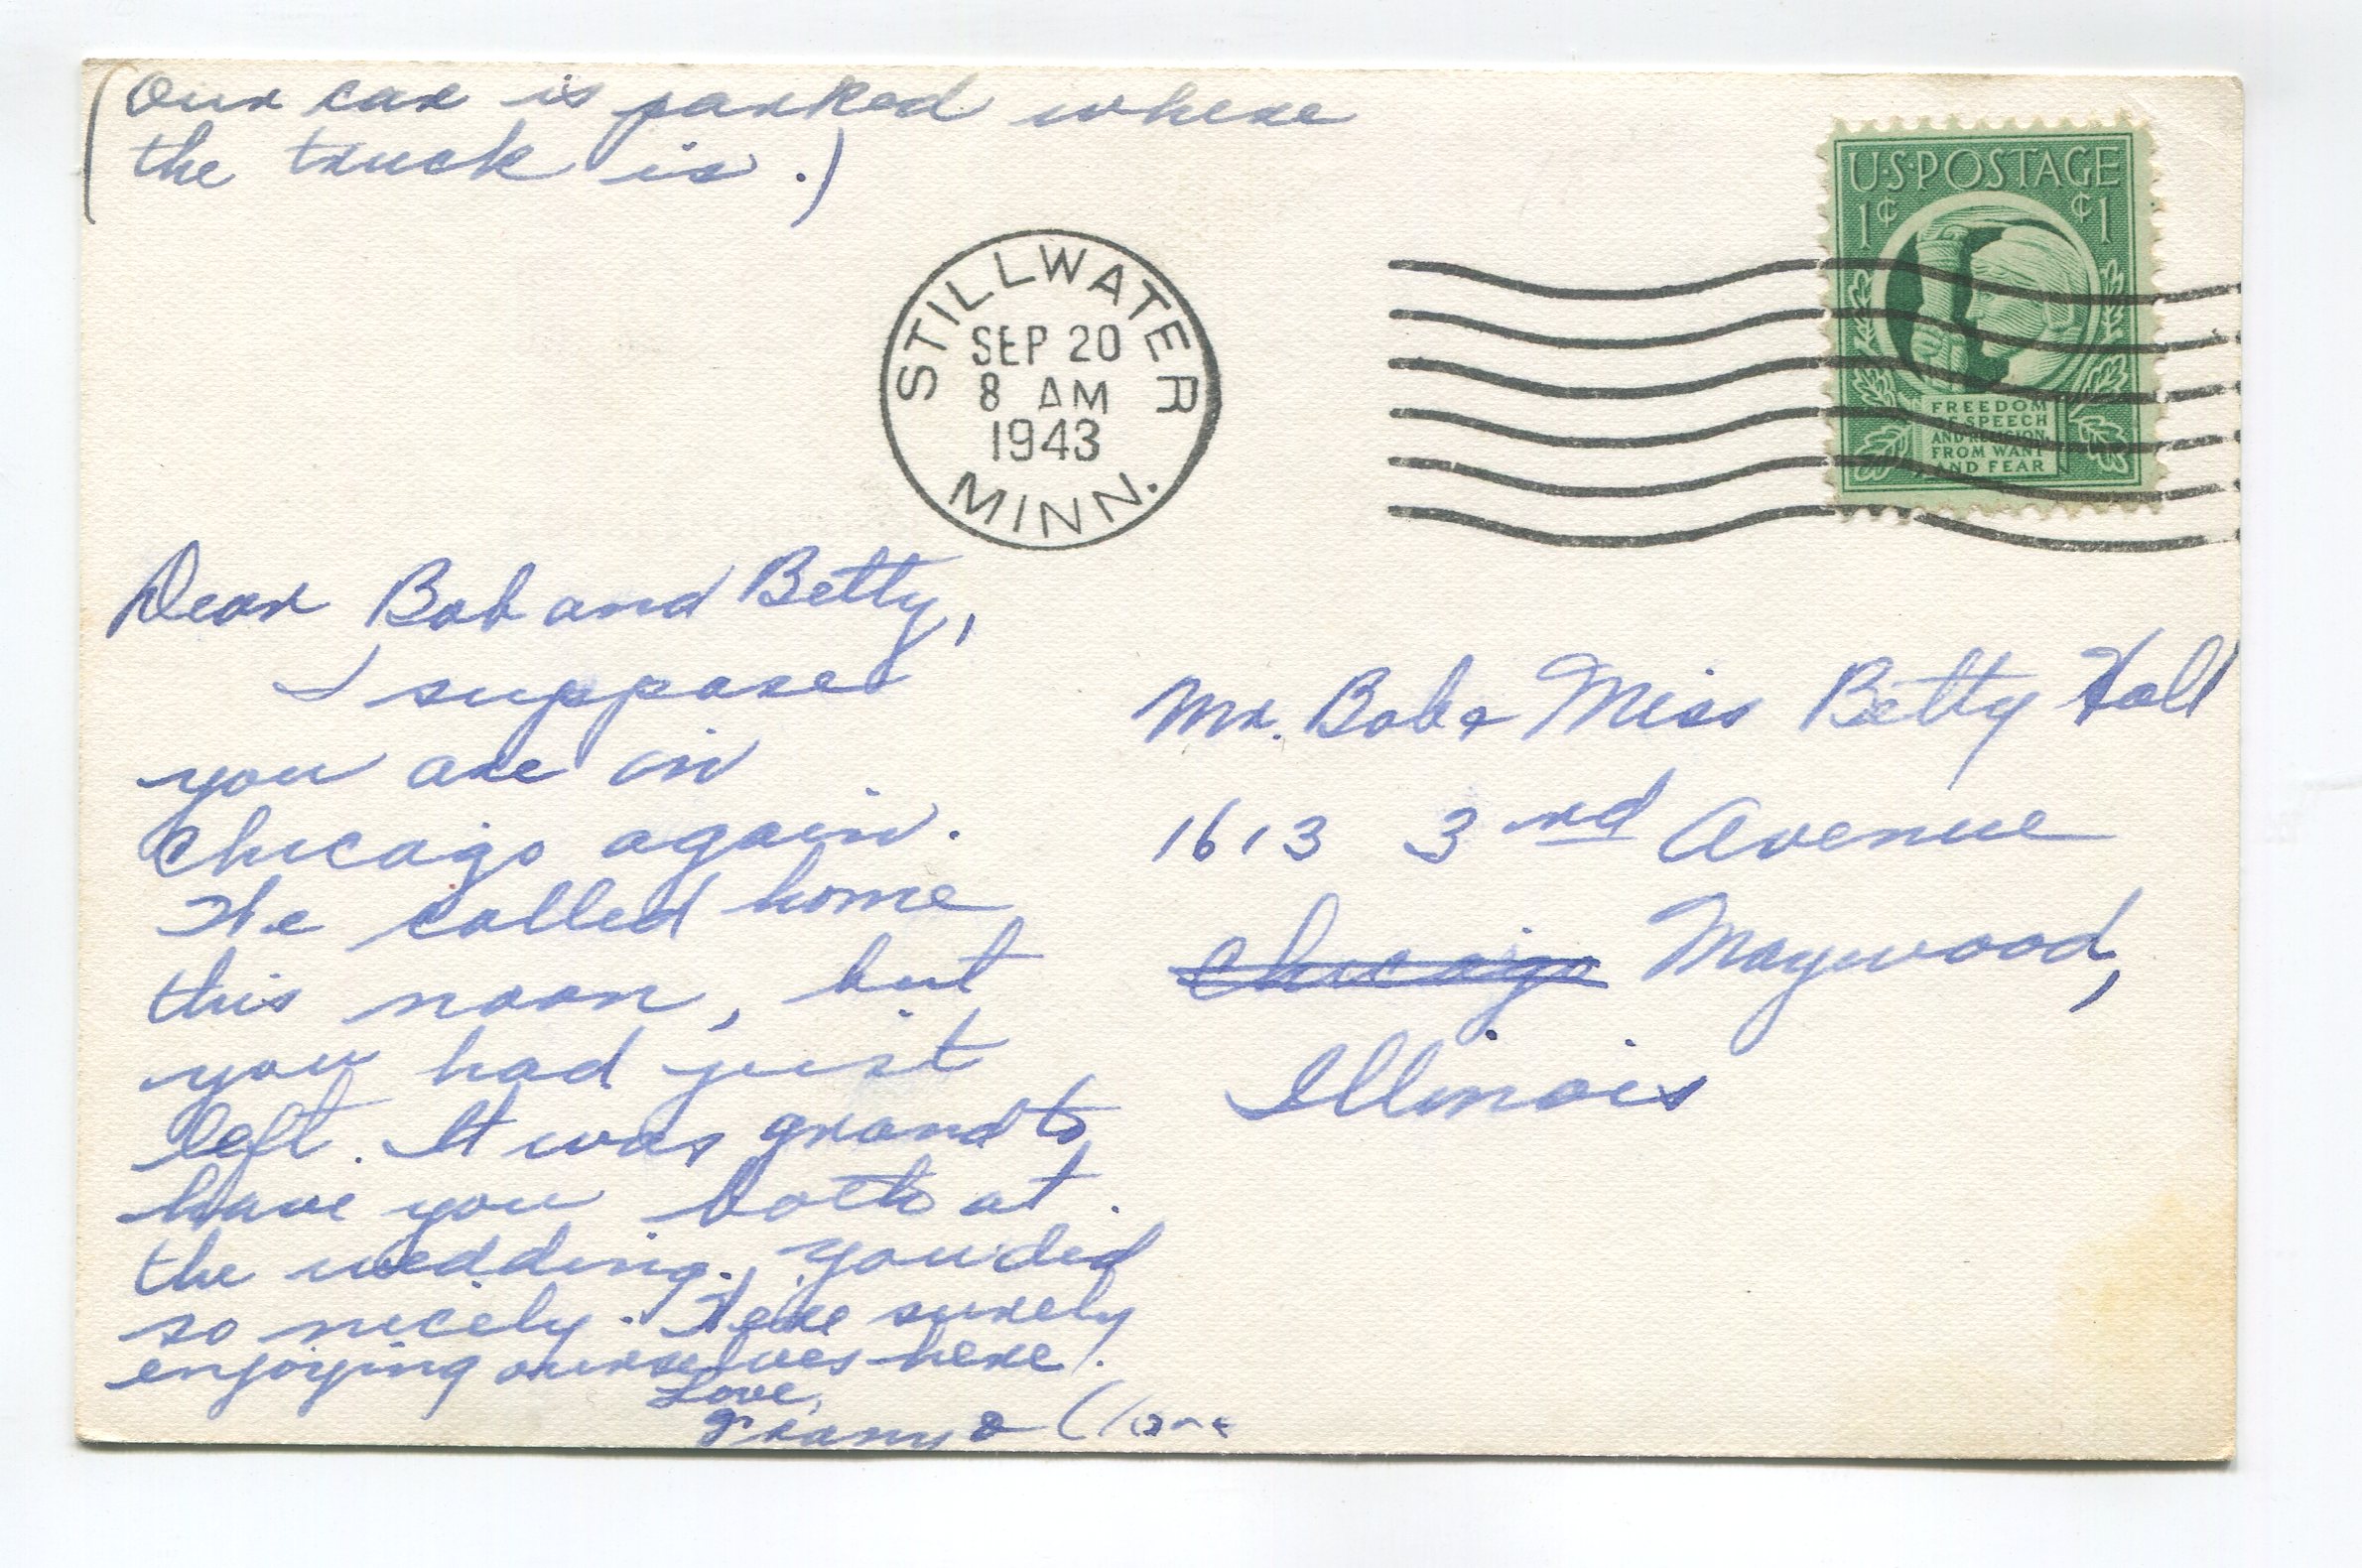 (Our car is parked where
the truck is.)
U.S. POSTAGE
1¢ ¢1
FREEDOM
OF SPEECH
AND RELIGION,
FROM WANT
AND FEAR
STILLWATER
SEP 20
8 AM
1943
MINN.
Dear Bob and Betty,
I suppose
you are in
Chicago again.
We called home
this noon, but
you had just
left. It was grand to
have you both at
the wedding. You did
so nicely. We are surely
enjoying ourselves here.
Love,
&
Mr. Bob & Miss Betty Hall
1613 3rd Avenue
Chicago Maywood,
Illinois